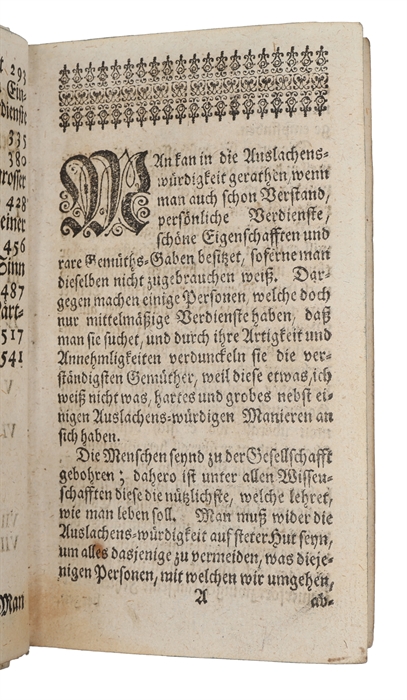 t 293
Ein-
dienste
335
380
rosser
428
einer
456
Sinn
487
Bärt-
517
541
Man
MAn kan in die Auslachens-
würdigkeit gerathen, wenn
man auch schon Verstand,
persönliche Verdienste,
schöne Eigenschafften und
rare Gemüths-Gaben besitzet, soferne man
dieselben nicht zugebrauchen weiß. Dar-
gegen machen einige Personen, welche doch
nur mittelmäßige Verdienste haben, daß
man sie suchet, und durch ihre Artigkeit und
Annehmligkeiten verdunckeln sie die ver-
ständigsten Gemüther, weil diese etwas, ich
weiß nicht was, hartes und grobes nebst ei-
nigen Auslachens-würdigen Manieren an
sich haben.
Die Menschen seynd zu der Gesellschafft
gebohren; dahero ist unter allen Wissen-
schafften diese die nützlichste, welche lehret,
wie man leben soll. Man muß wider die
Auslachens-würdigkeit auf steter Hut seyn,
um alles dasjenige zu vermeiden, was dieje-
nigen Personen, mit welchen wir umgehen,
A ab-